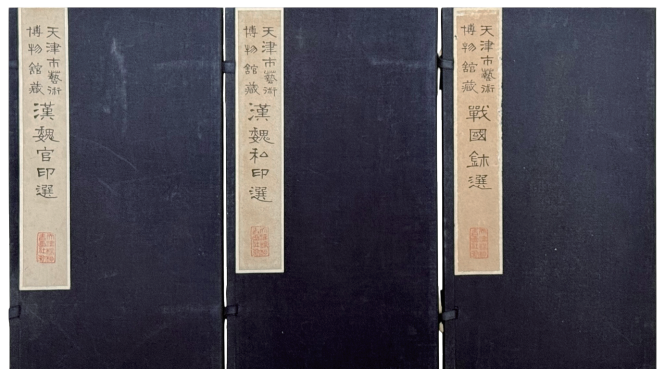 天津市藝術
博物館藏
漢魏官印選
天津市藝術
博物館藏
漢魏私印選
天津市藝術
博物館藏
戰國鉥選